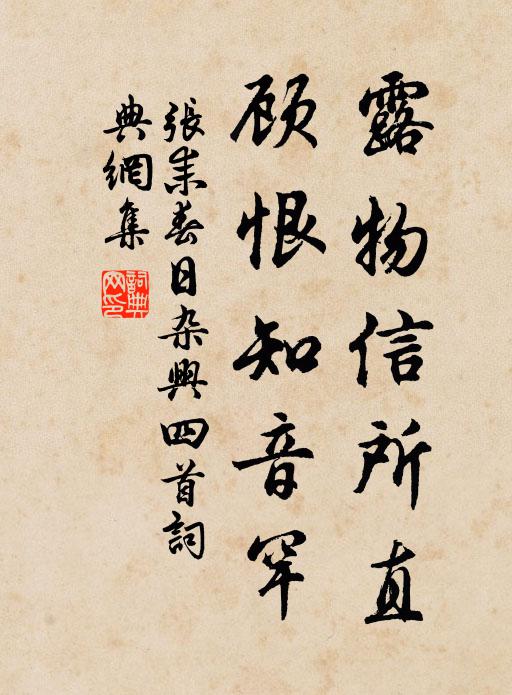 露物信所直
顾恨知音罕
張耒春日杂興四首詞
典網集
詞典网印